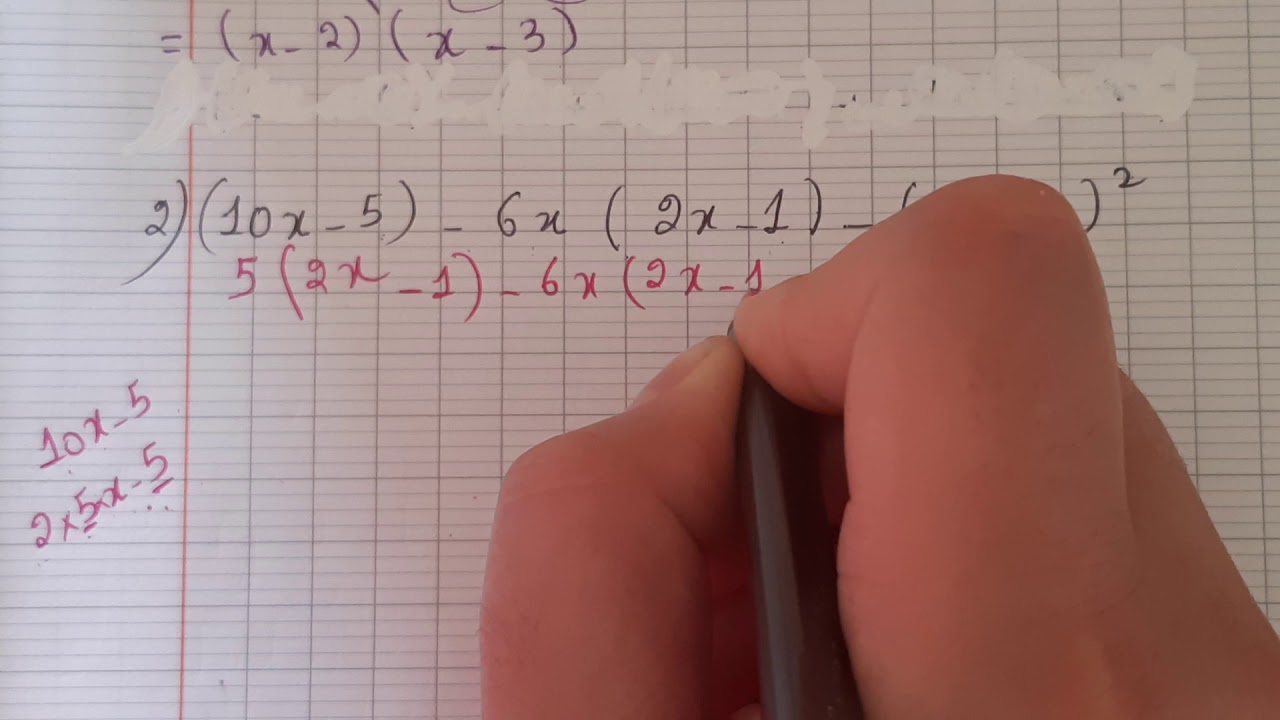 = (x - 2) (x - 3)
2) (10x - 5) - 6x ( 2x - 1) - ( )²
5 (2x - 1) - 6x (2x - 1
10x - 5
2 x 5 x x - 5